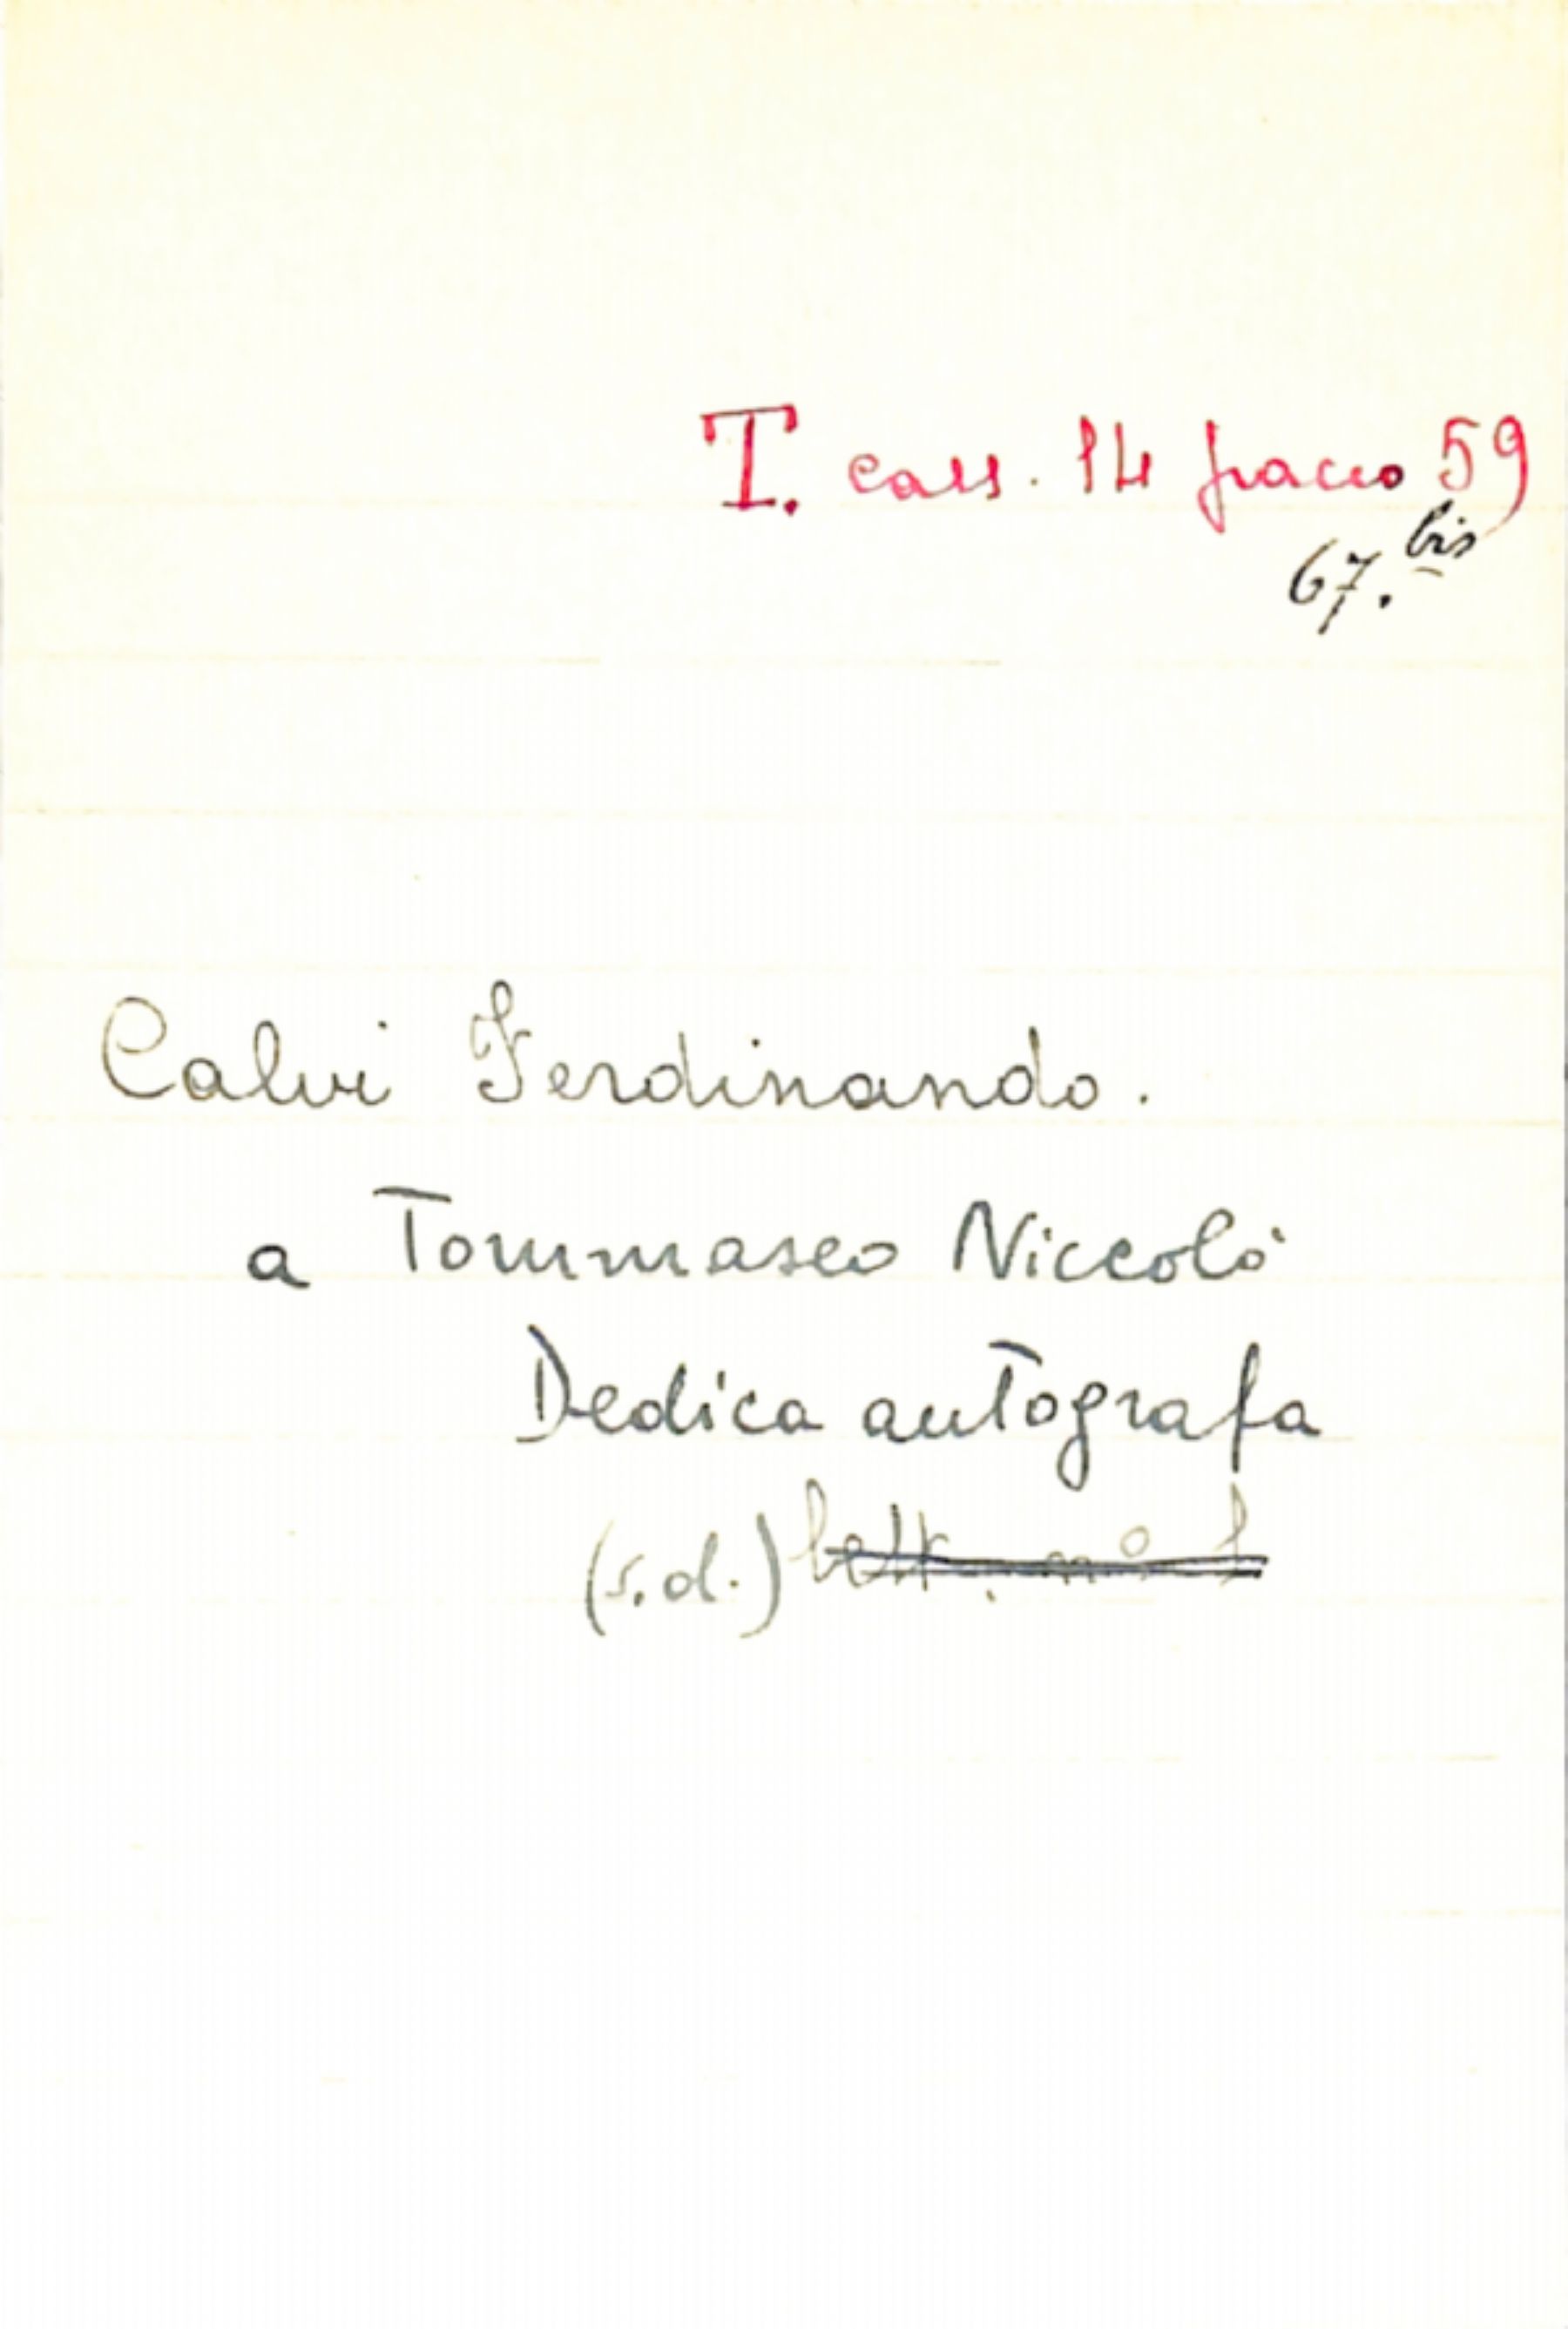 T. cass. 14 pacco 59
67. bis
Calvi Ferdinando.
a Tommaseo Niccolò
Dedica autografa
(s.d.) lett. n° 1